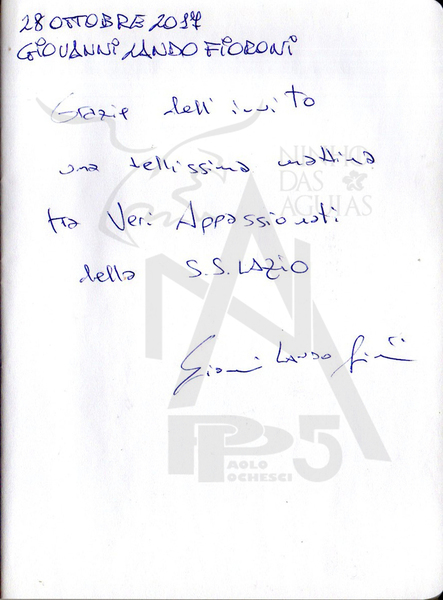 28 OTTOBRE 2017
GIOVANNI LANDO FIORONI
Grazie dell'invito
una bellissima mattina
tra Veri Appassionati
della S.S. LAZIO
Giovanni LANDO Fioroni
NINHO
DAS
AGUIAS
PP5
PAOLO
POCHESCI